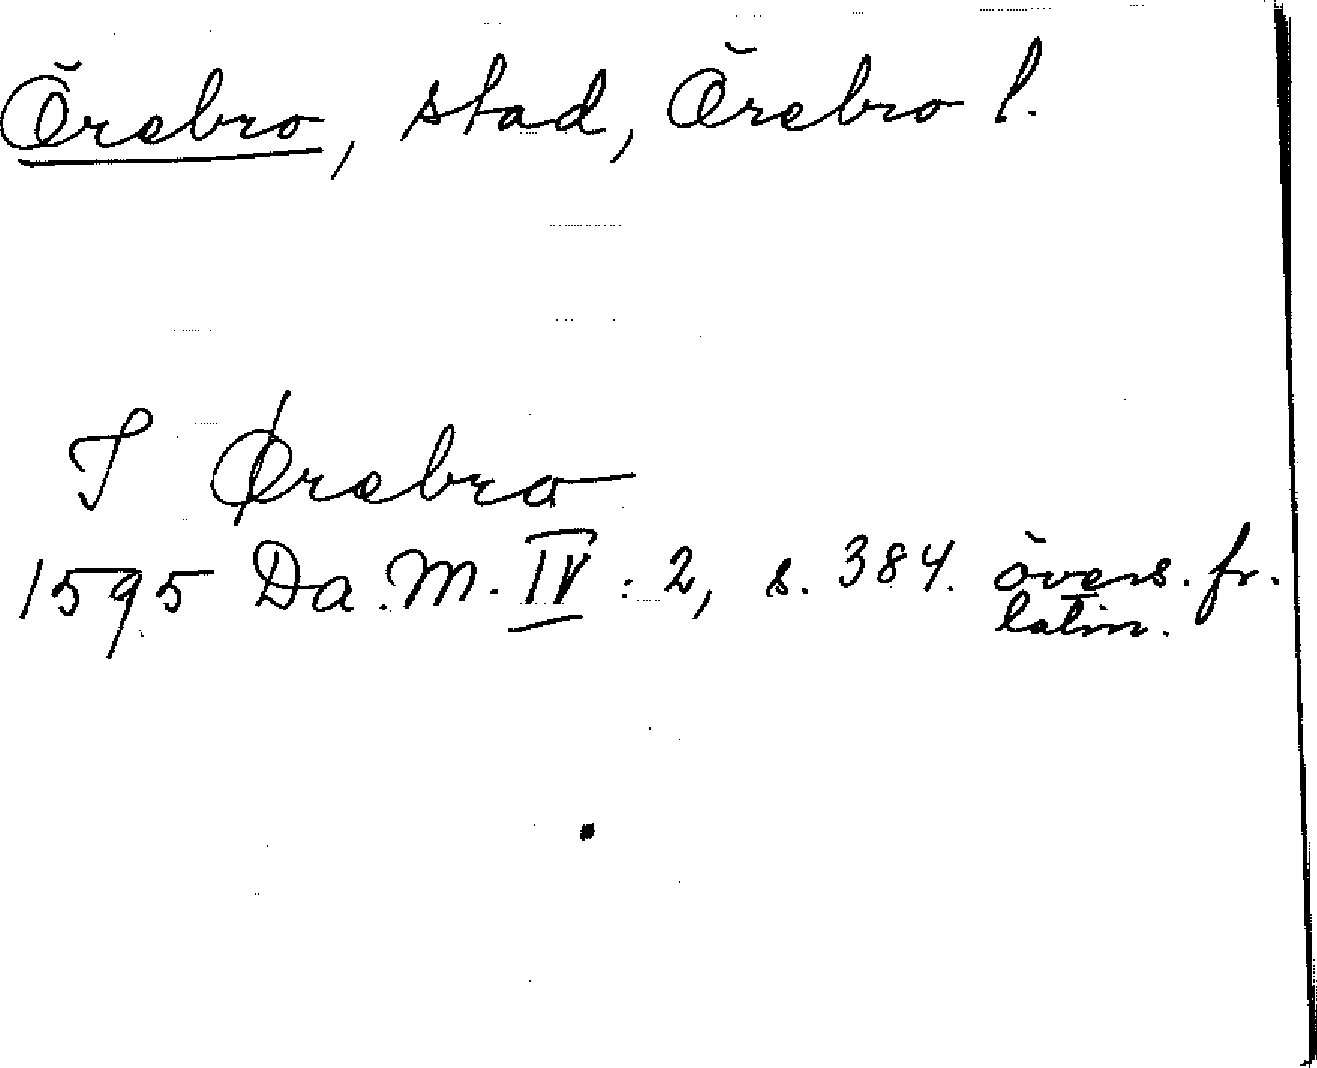 Örebro, stad, Örebro l.
I Ørebro
1595 Da. M. IV : 2, s. 384. övers. fr.
latin.